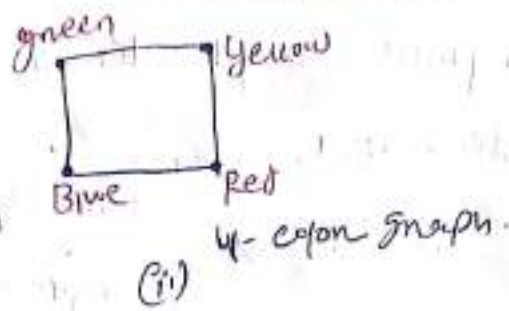 green
Yellow
Blue
Red
4- colon graph.
(ii)